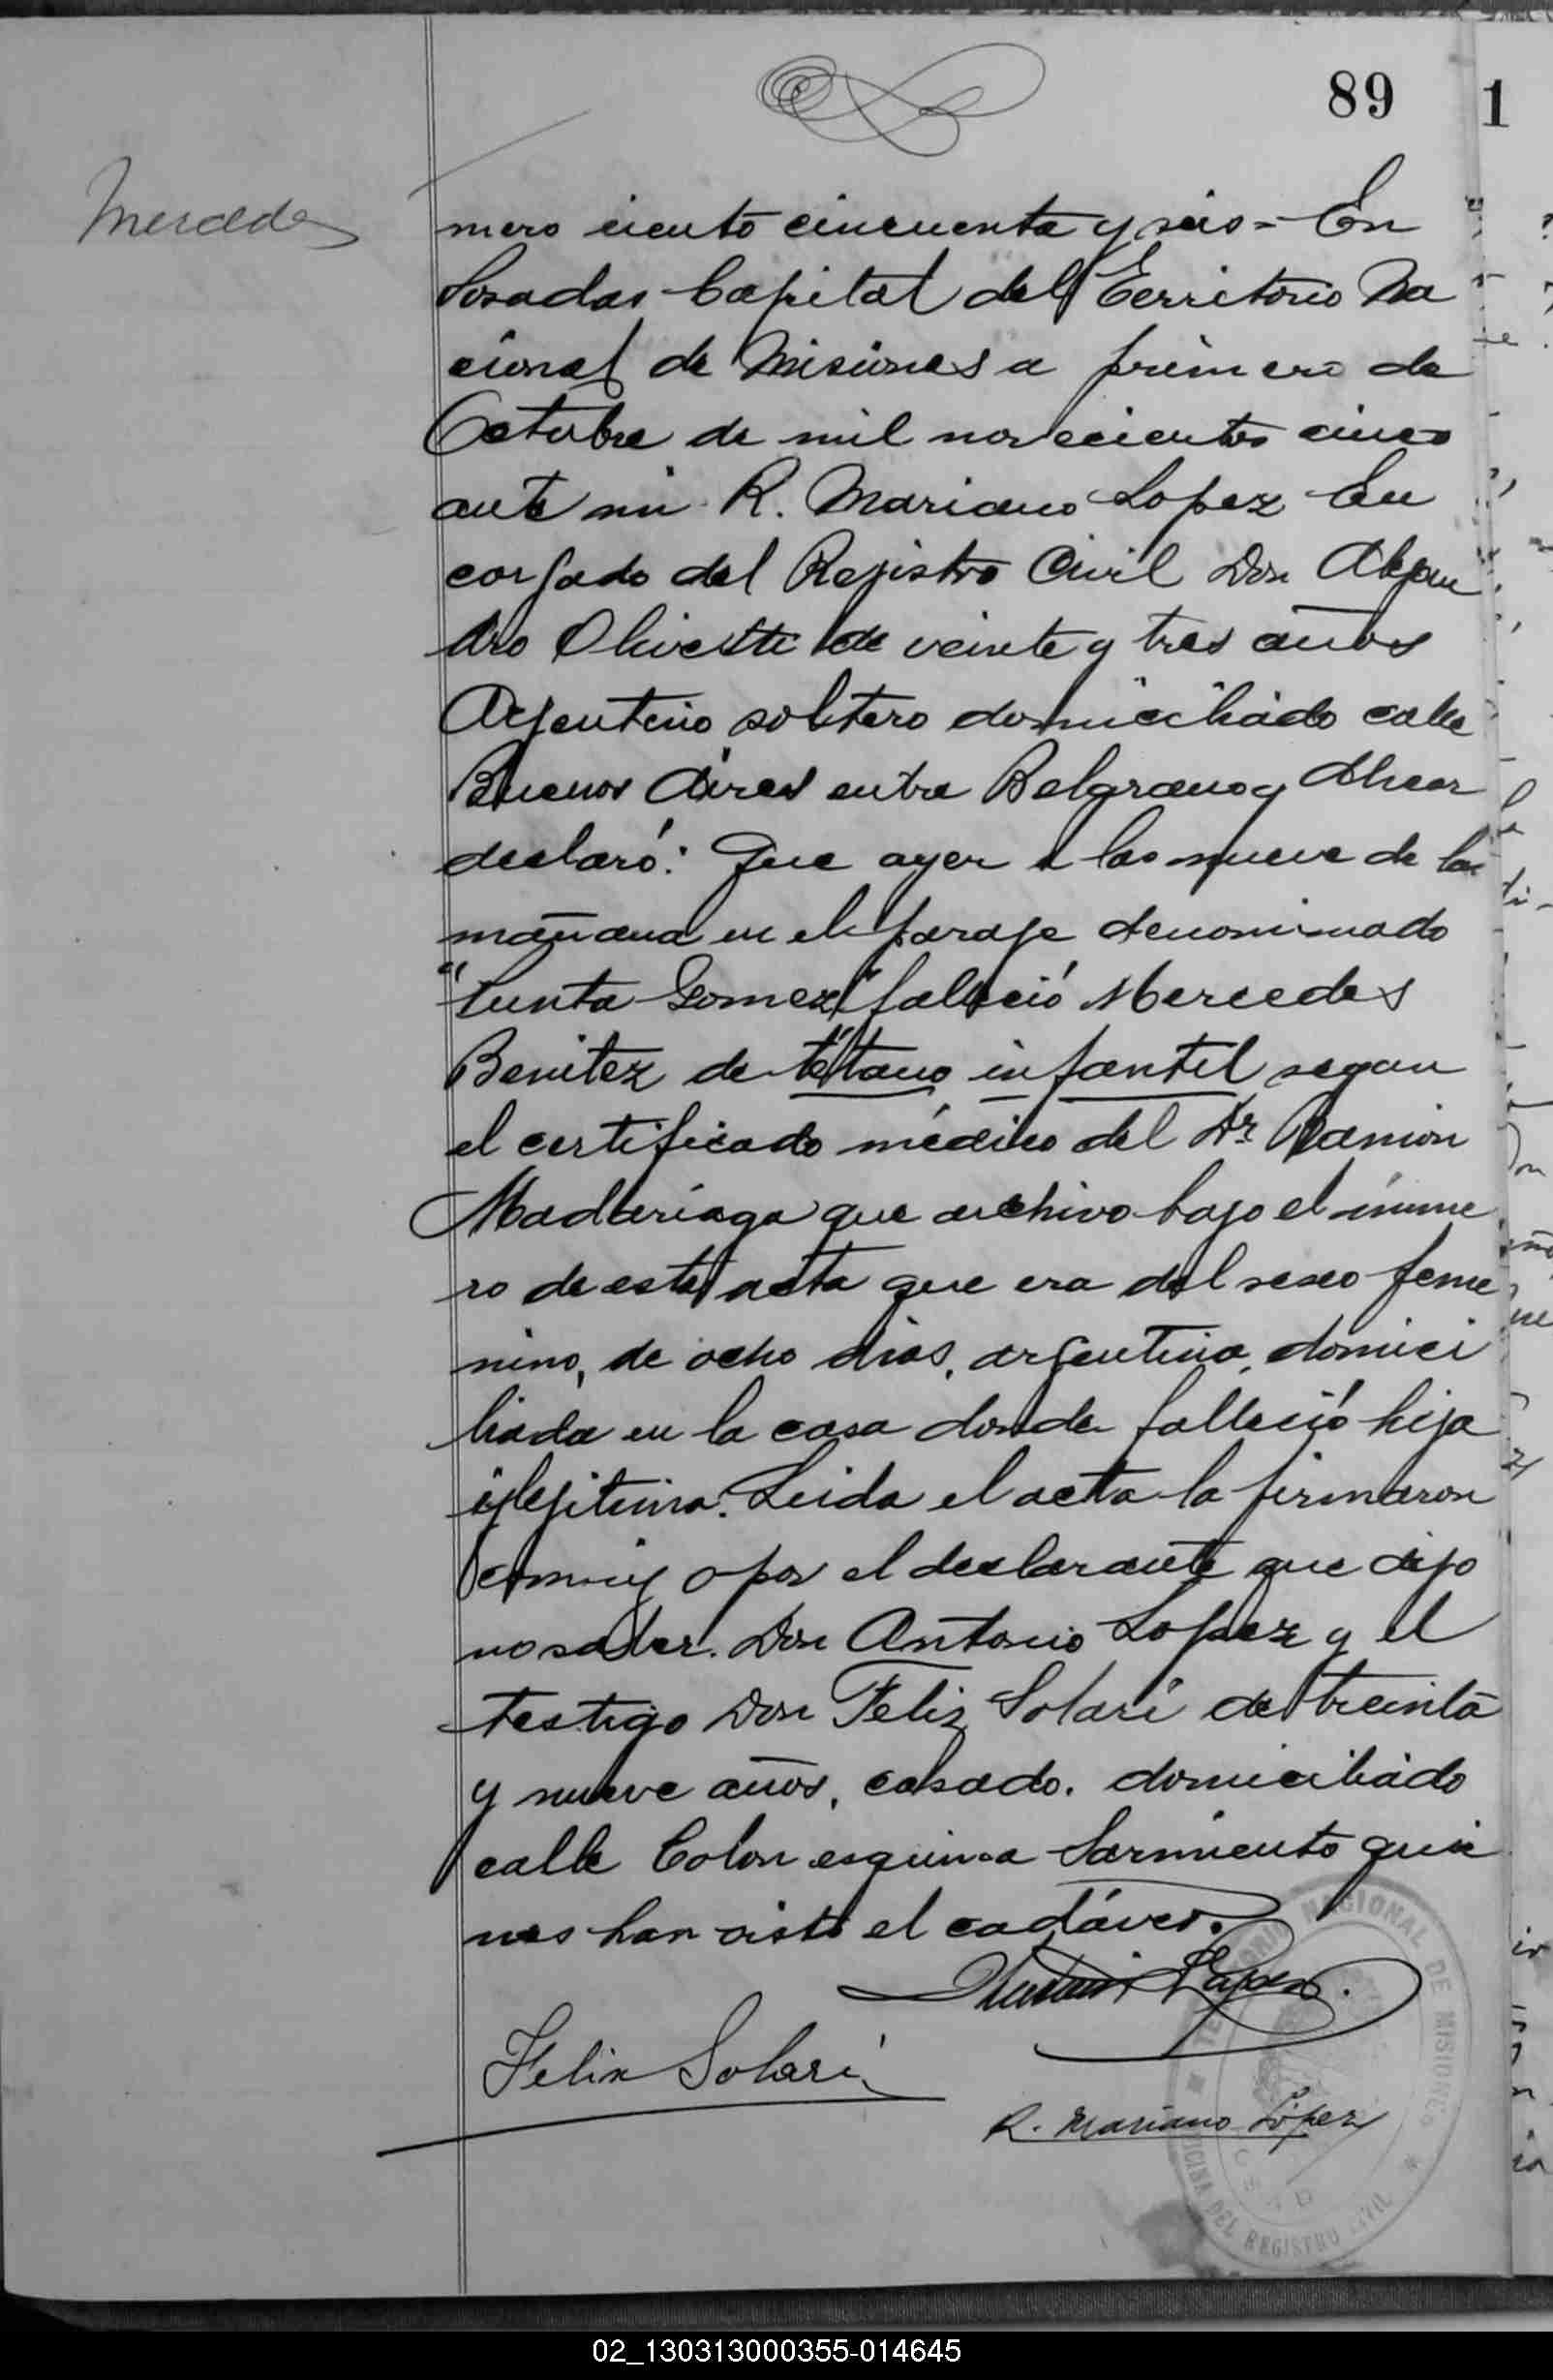 89
1
Mercedes
mero ciento cincuenta y seis = En
Posadas Capital del Territorio Na
cional de Misiones a primero de
Octubre de mil novecientos cinco
ante mi R. Mariano Lopez En
cargado del Registro Civil Don Alejan
dro Olivetti de veinte y tres años
Argentino soltero domiciliado calle
Buenos Aires entre Belgrano y Alvear
declaró: Que ayer a las nueve de la
mañana en el paraje denominado
"Punta Gomez" falleció Mercedes
Benitez de tétano infantil segun
el certificado médico del Dr. Ramon
Madariaga que archivo bajo el núme
ro de esta acta que era del sexo feme
nino, de ocho dias, argentina, domici
liada en la casa donde falleció hija
ilejitima. Leida el acta la firmaron
conmigo por el declarante que dijo
no saber. Don Antonio Lopez y el
testigo Don Feliz Solari de treinta
y nueve años, casado. domiciliado
calle Colon esquina Sarmiento quie
nes han visto el cadáver.
Antonio Lopez.
Felix Solari
R. Mariano López
NACIONAL DE MISIONES
OFICINA DEL REGISTRO CIVIL
02_130313000355-014645